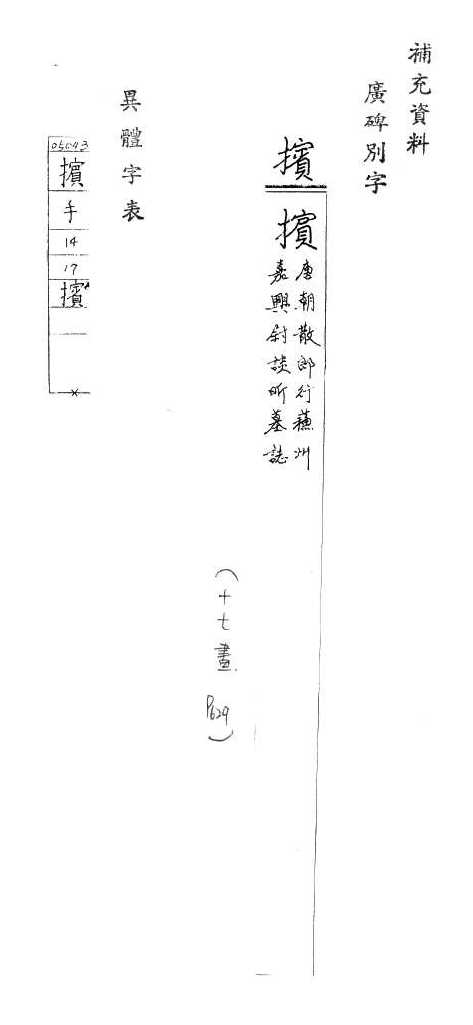 補充資料
廣碑別字
擯
擯
唐朝散郎行蘇州
嘉興尉談昕墓誌
(十七畫 P629)
異體字表
05043
擯
手
14
17
擯